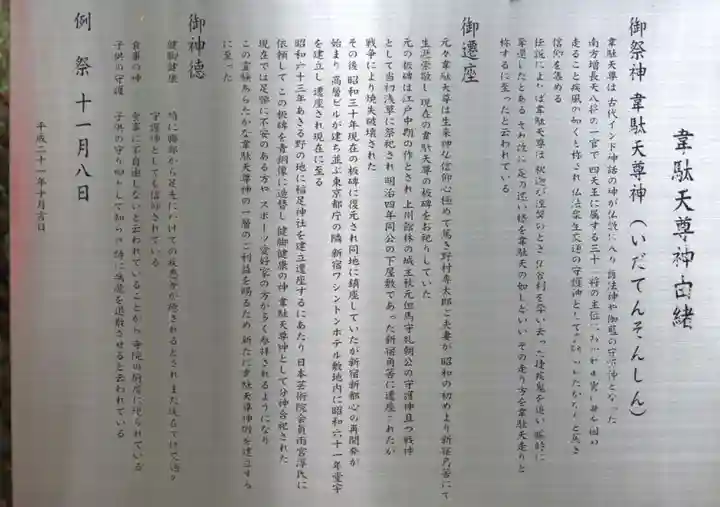 韋駄天尊神由緒
御祭神 韋駄天尊神（いだてんそんしん）
韋駄天尊は古代インド神話の神が仏教に入り護法神や伽藍の守護神となった
南方増長天八将の一官で四天王に属する三十二将の主位
走ること疾風の如くと称され仏法衆生交通の守護神として
信仰を集める
伝説によれば韋駄天尊は釈迦が涅槃のとき仏舎利を奪い去った捷疾鬼を追い瞬時に
奪還したとある その故に足の速い様を韋駄天の如しといい その走り方を韋駄天走りと
称するに至ったと云われている
御遷座
元々韋駄天尊は生来神仏信仰心極めて篤き野村専太郎ご夫妻が 昭和の初めより新宿角筈にて
生涯崇敬し 現在の韋駄天尊の板碑をお祀りしていた
元の板碑は江戸中期の作とされ 上州館林の城主秋元但馬守礼朝公の守護神且つ戦神
として当初浅草に祭祀され 明治四年同公の下屋敷であった新宿角筈に遷座されたが
戦争により焼失破壊された
その後 昭和三十年現在の板碑に復元され同地に鎮座していたが新宿新都心の再開発が
始まり 高層ビルが建ち並ぶ東京都庁の隣 新宿ワシントンホテル敷地内に昭和六十一年堂宇
を建立し 遷座され現在に至る
昭和六十三年あきる野の地に稲足神社を建立遷座するにあたり 日本芸術院会員雨宮淳氏に
依頼して この板碑を青銅像に造替し 健脚健康の神 韋駄天尊神として分神合祀された
現在では足腰に不安のある方や スポーツ愛好家の方が多く参拝されるようになり
この霊験あらたかな韋駄天尊神の一層のご利益を賜るため 新たに韋駄天尊神像を建立する
に至った
御神徳
健脚健康 特に腰部から足先にかけての疾患等が癒されるとされまた
守護神としても信仰されている
食事の神 食事に不自由しないと云われていることから 寺院の厨房に祀られている
子供の守護 子供の守り神として知られ 特に病魔を退散させると云われている
例祭 十一月八日
平成二十一年 月吉日